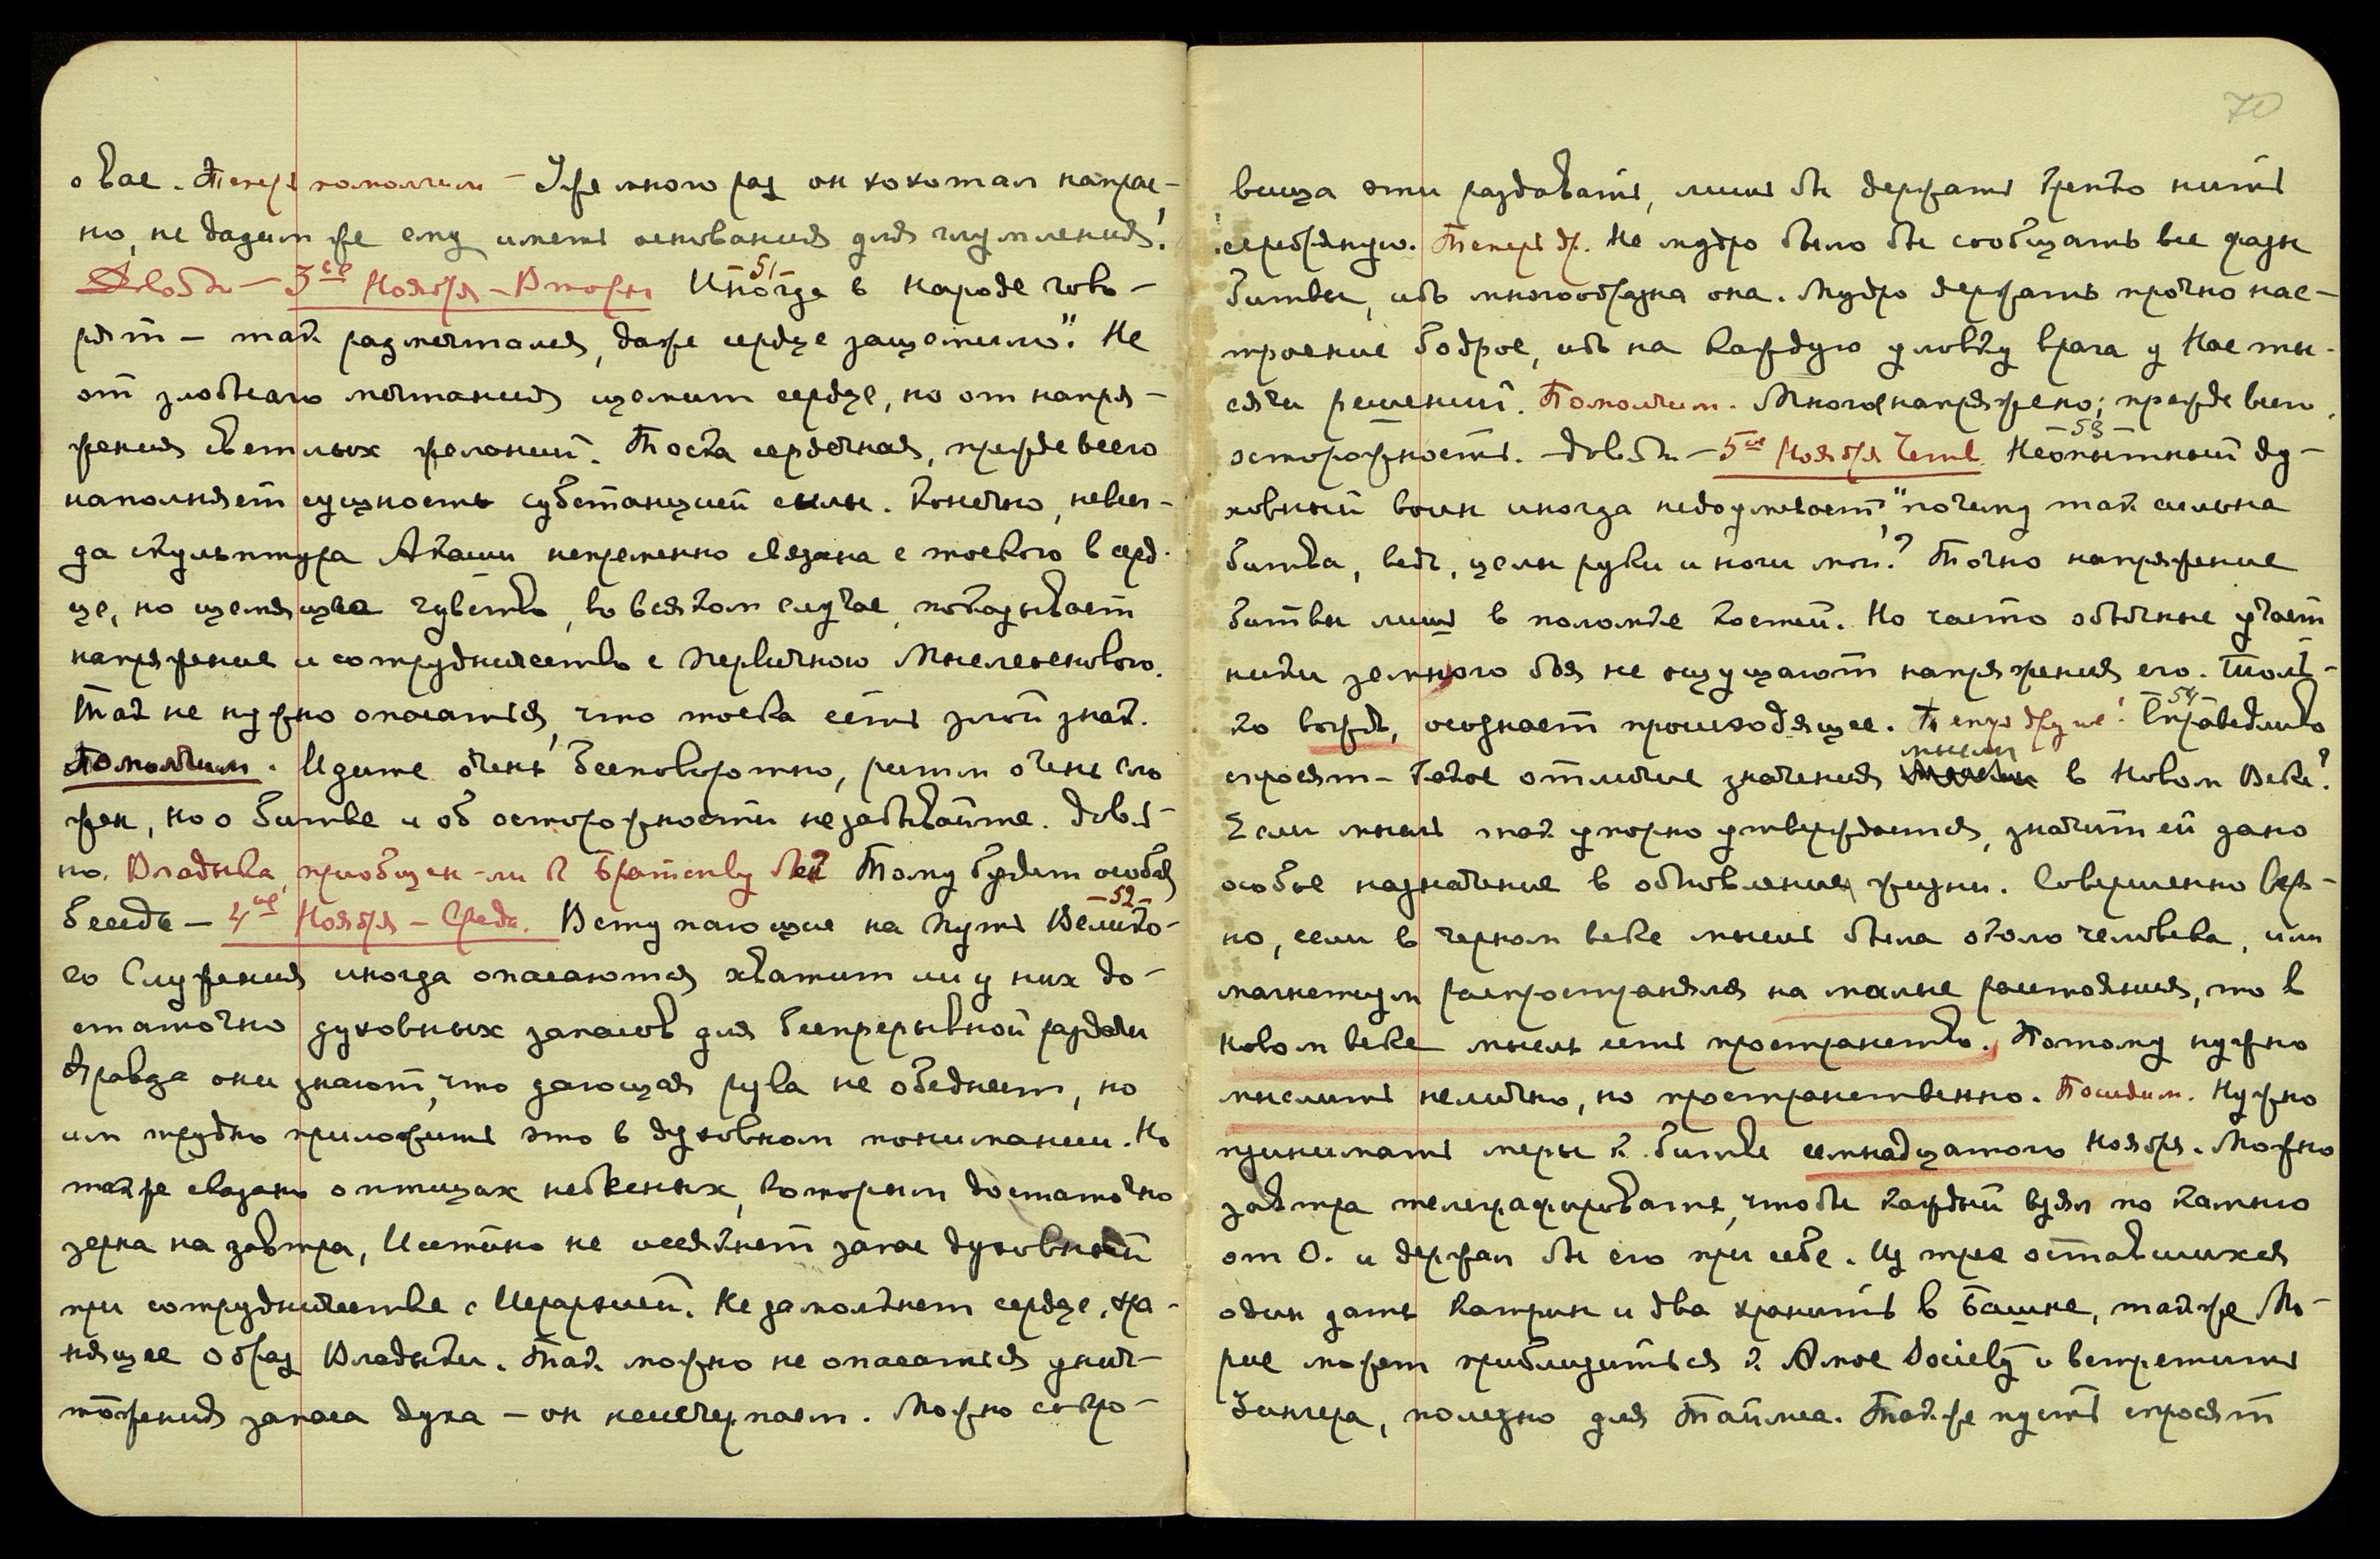 о вас. Теперь помолчим – Уже много раз он хохотал напрас-
но, не дадим же ему иметь основания для глумления!
Довольно – 3ье Ноября – Вторн
–51–
Иногда в народе гово-
рят – так размечтался, даже сердце защемило". Не
от злобного мечтания щемит сердце, но от напря-
жения светлых желаний. Тоска сердечная, прежде всего
наполняет сущность субстанцией силы. Конечно, невсег-
да скульптура Акаши непременно связана с тоскою в серд-
це, но щемящее чувство, во всяком случае, показывает
напряжение и сотрудничество с первичною Мыслеосновою.
Так не нужно опасаться, что тоска есть злой знак.
Помолчим. Идите очень бесповоротно, ритм очень сло
жен, но о битве и об осторожности незабывайте. Доволь-
но. Владыка, приобщен-ли к Братству Тому будет особая
беседа – 4ое Ноября – Среда.
–52–
Вступающие на Путь Велико-
го Служения иногда опасаются хватит ли у них до-
статочно духовных запасов для беспрерывной раздачи
Правда они знают, что дающая рука не обеднеет, но
им трудно приложить это в духовном понимании. Но
также сказано о птицах небесных, которым достаточно
зерна на завтра, Истинно не иссякнет запас духовный
при сотрудничестве с Иерархией. Не замолкнет сердце, хра-
нящее Образ Владыки. Так можно не опасаться унич-
тожения запаса духа – он неисчерпаем. Можно сокро-
70
вища эти раздавать, лишь бы держать крепко нить
серебряную. Теперь др. Не мудро было бы сообщать все фазы
битвы, ибо многообразна она. Мудро держать прочно нас-
троение бодрое, ибо на каждую уловку врага у Нас ты-
сячи решений. Помолчим. Много напряжено; прежде всего,
осторожность. – Довольно – 5ое Ноября Четв.
–53–
Неопытный ду-
ховный воин иногда недоумевает, "почему так сильна
битва, ведь, целы руки и ноги мои?" Точно напряжение
битвы лишь в поломке костей. Но часто обычные участ
ники земного боя не ощущают напряжения его. Толь-
ко вождь, осознает происходящее. Теперь другие!
–54–
Справедливо
спросят – Какое отличие значения мысли в Новом Веке?
Если мысль так упорно утверждается, значит ей дано
особое назначение в обновление жизни. Совершенно вер-
но, если в черном веке мысль была около человека, или
магнетизм распространялся на малые расстояния, то в
новом веке мысль есть пространство. Потому нужно
мыслить нелично, но пространственно. Посидим. Нужно
принимать меры к битве семнадцатого Ноября. Можно
завтра телеграфировать, чтобы каждый взял по камню
от О. и держал бы его при себе. Из трех оставшихся
один дать Катрин и два хранить в Башне, также Мо-
рис может приблизиться к Society и встретить
Зингера, полезно для Таймса. Также пусть спросят